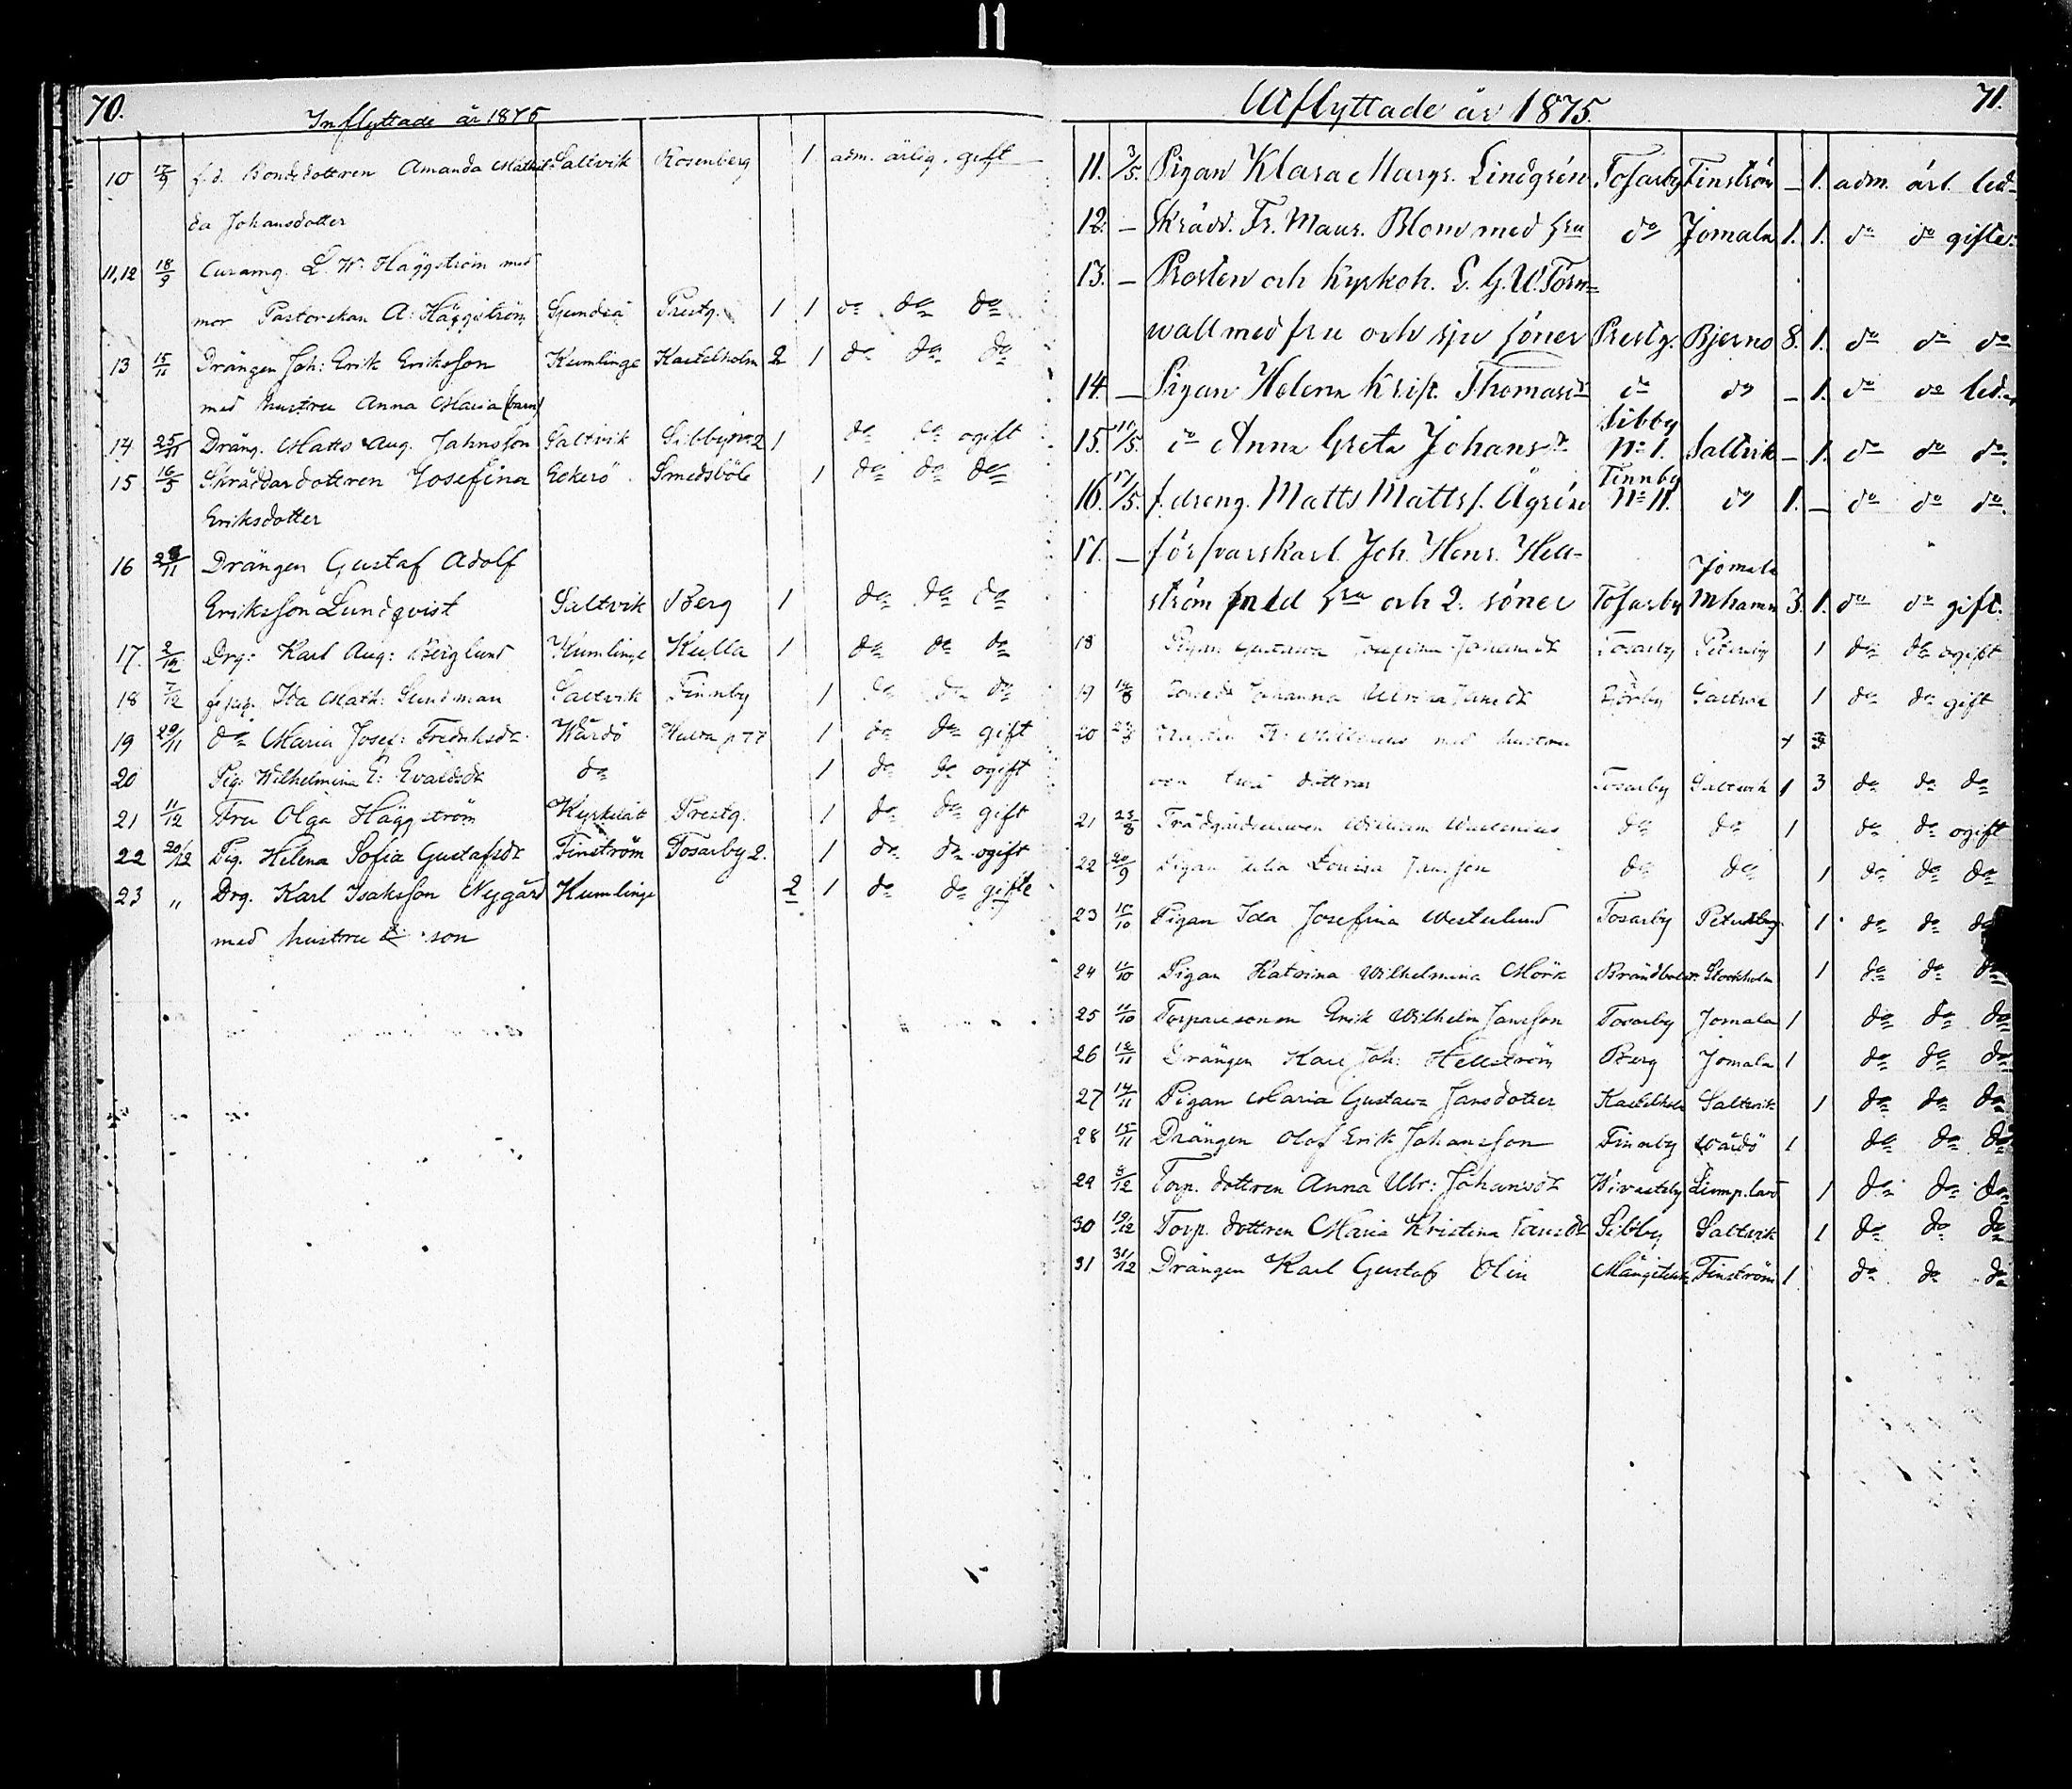 70.
Inflyttade år 1875
10 17/9 f.d. Bondedottren Amanda Mathil- Saltvik Rosenberg 1 adm. ärlig. gift
da Johansdotter
11,12 18/9 L. W. Häggström med
mor Pastorskan A: Häggström Prestg. 1 1 do do do
13 15/11 Drängen Joh: Erik Eriksson Kumlinge Kastelholm 2 1 do do do
med hustru Anna Maria (barn)
14 25/11 Dräng. Matts Aug. Jahnsson Saltvik Sibby No 2 1 do do ogift
15 16/5 Skräddardottren Josefina Eckerö Smedsböle 1 do do do
Eriksdotter
16 Drängen Gustaf Adolf
Eriksson Lundqvist Saltvik Berg 1 do do do
17. 2/12 Drg: Karl Aug: Berglund Kumlinge Kulla 1 do do do
18 7/12 Ida Math: Sundman Saltvik Finnby 1 do do do
19 29/11 do Maria Josef: Fredriksdr Wårdö 1 do do gift
20 Pig. Wilhelmina E: Evaldsdr do 1 do do ogift
21 11/12 Fru Olga Häggström Kyrkslät Prestg. 1 do do gift
22 20/12 Pig. Helena Sofia Gustafsdr Finström Tosarby 2. 1 do do ogift
23 " Drg. Karl Isaksson Nygård Kumlinge 2 1 do do gifte
med hustru & son
71.
Utflyttade år 1875.
11. 3/5. Pigan Klara Margr. Lindgrén Tosarby Finström – 1. adm. ärl. led.
12. – Skrädd. Fr. Maur. Blom med hru do Jomala 1. 1. do do gifte.
13. – Prosten och Kyrkoh. L. G. W. Torn=
wall med fru och sju söner Prestg. Bjerno 8. 1. do do do
14. – Pigan Helena Krist. Thomasdr do do – 1. do do led.
15. 10/5. do Anna Greta Johansdr Sibby No 1. Saltvik – 1. do do do.
16. 17/5. f. dreng. Matts Mattss. Ågrén Finnby No 11. do 1. – do do do.
17. – försvarskarl Joh. Henr. Hell-
ström med hru och 2. söner Tosarby Jomala 3. 1. do do gift.
18 Pigan Gustava Josefina Johansdr Tosarby Petersbg 1 do do ogift
19 14/8 Johanna Ulrika Jansdr Saltvik 1 do do gift
20 med hustru
och två döttrar Tosarby Saltvik 1 3 do do do
21 25/8 Trädgårdseleven William do do 1 do do ogift
22 20/9 Pigan Julia Lovisa Jansson do do 1 do do do
23 10/10 Pigan Ida Josefina Westerlund Tosarby Petersbg 1 do do do
24 11/10 Pigan Katrina Wilhelmina Mörk Brändbolst. Stockholm 1 do do do
25 11/10 Torparesonen Erik Wilhelm Jansson Tosarby Jomala 1 do do do
26 12/11 Drängen Karl Joh: Hellström Berg Jomala 1 do do do
27 14/11 Pigan Maria Gustava Jansdotter Kastelholm Saltvik 1 do do do
28 15/11 Drängen Olof Erik Johansson Finnby Wårdö 1 do do do
29 5/12 Torp. dottren Anna Ulr: Johansdr Limp.land 1 do do do
30 19/12 Torp. dottren Maria Kristina Jansdr Sibby Saltvik 1 do do do
31 31/12 Drängen Karl Gustaf Olin Mångstekta Finström 1 do do do